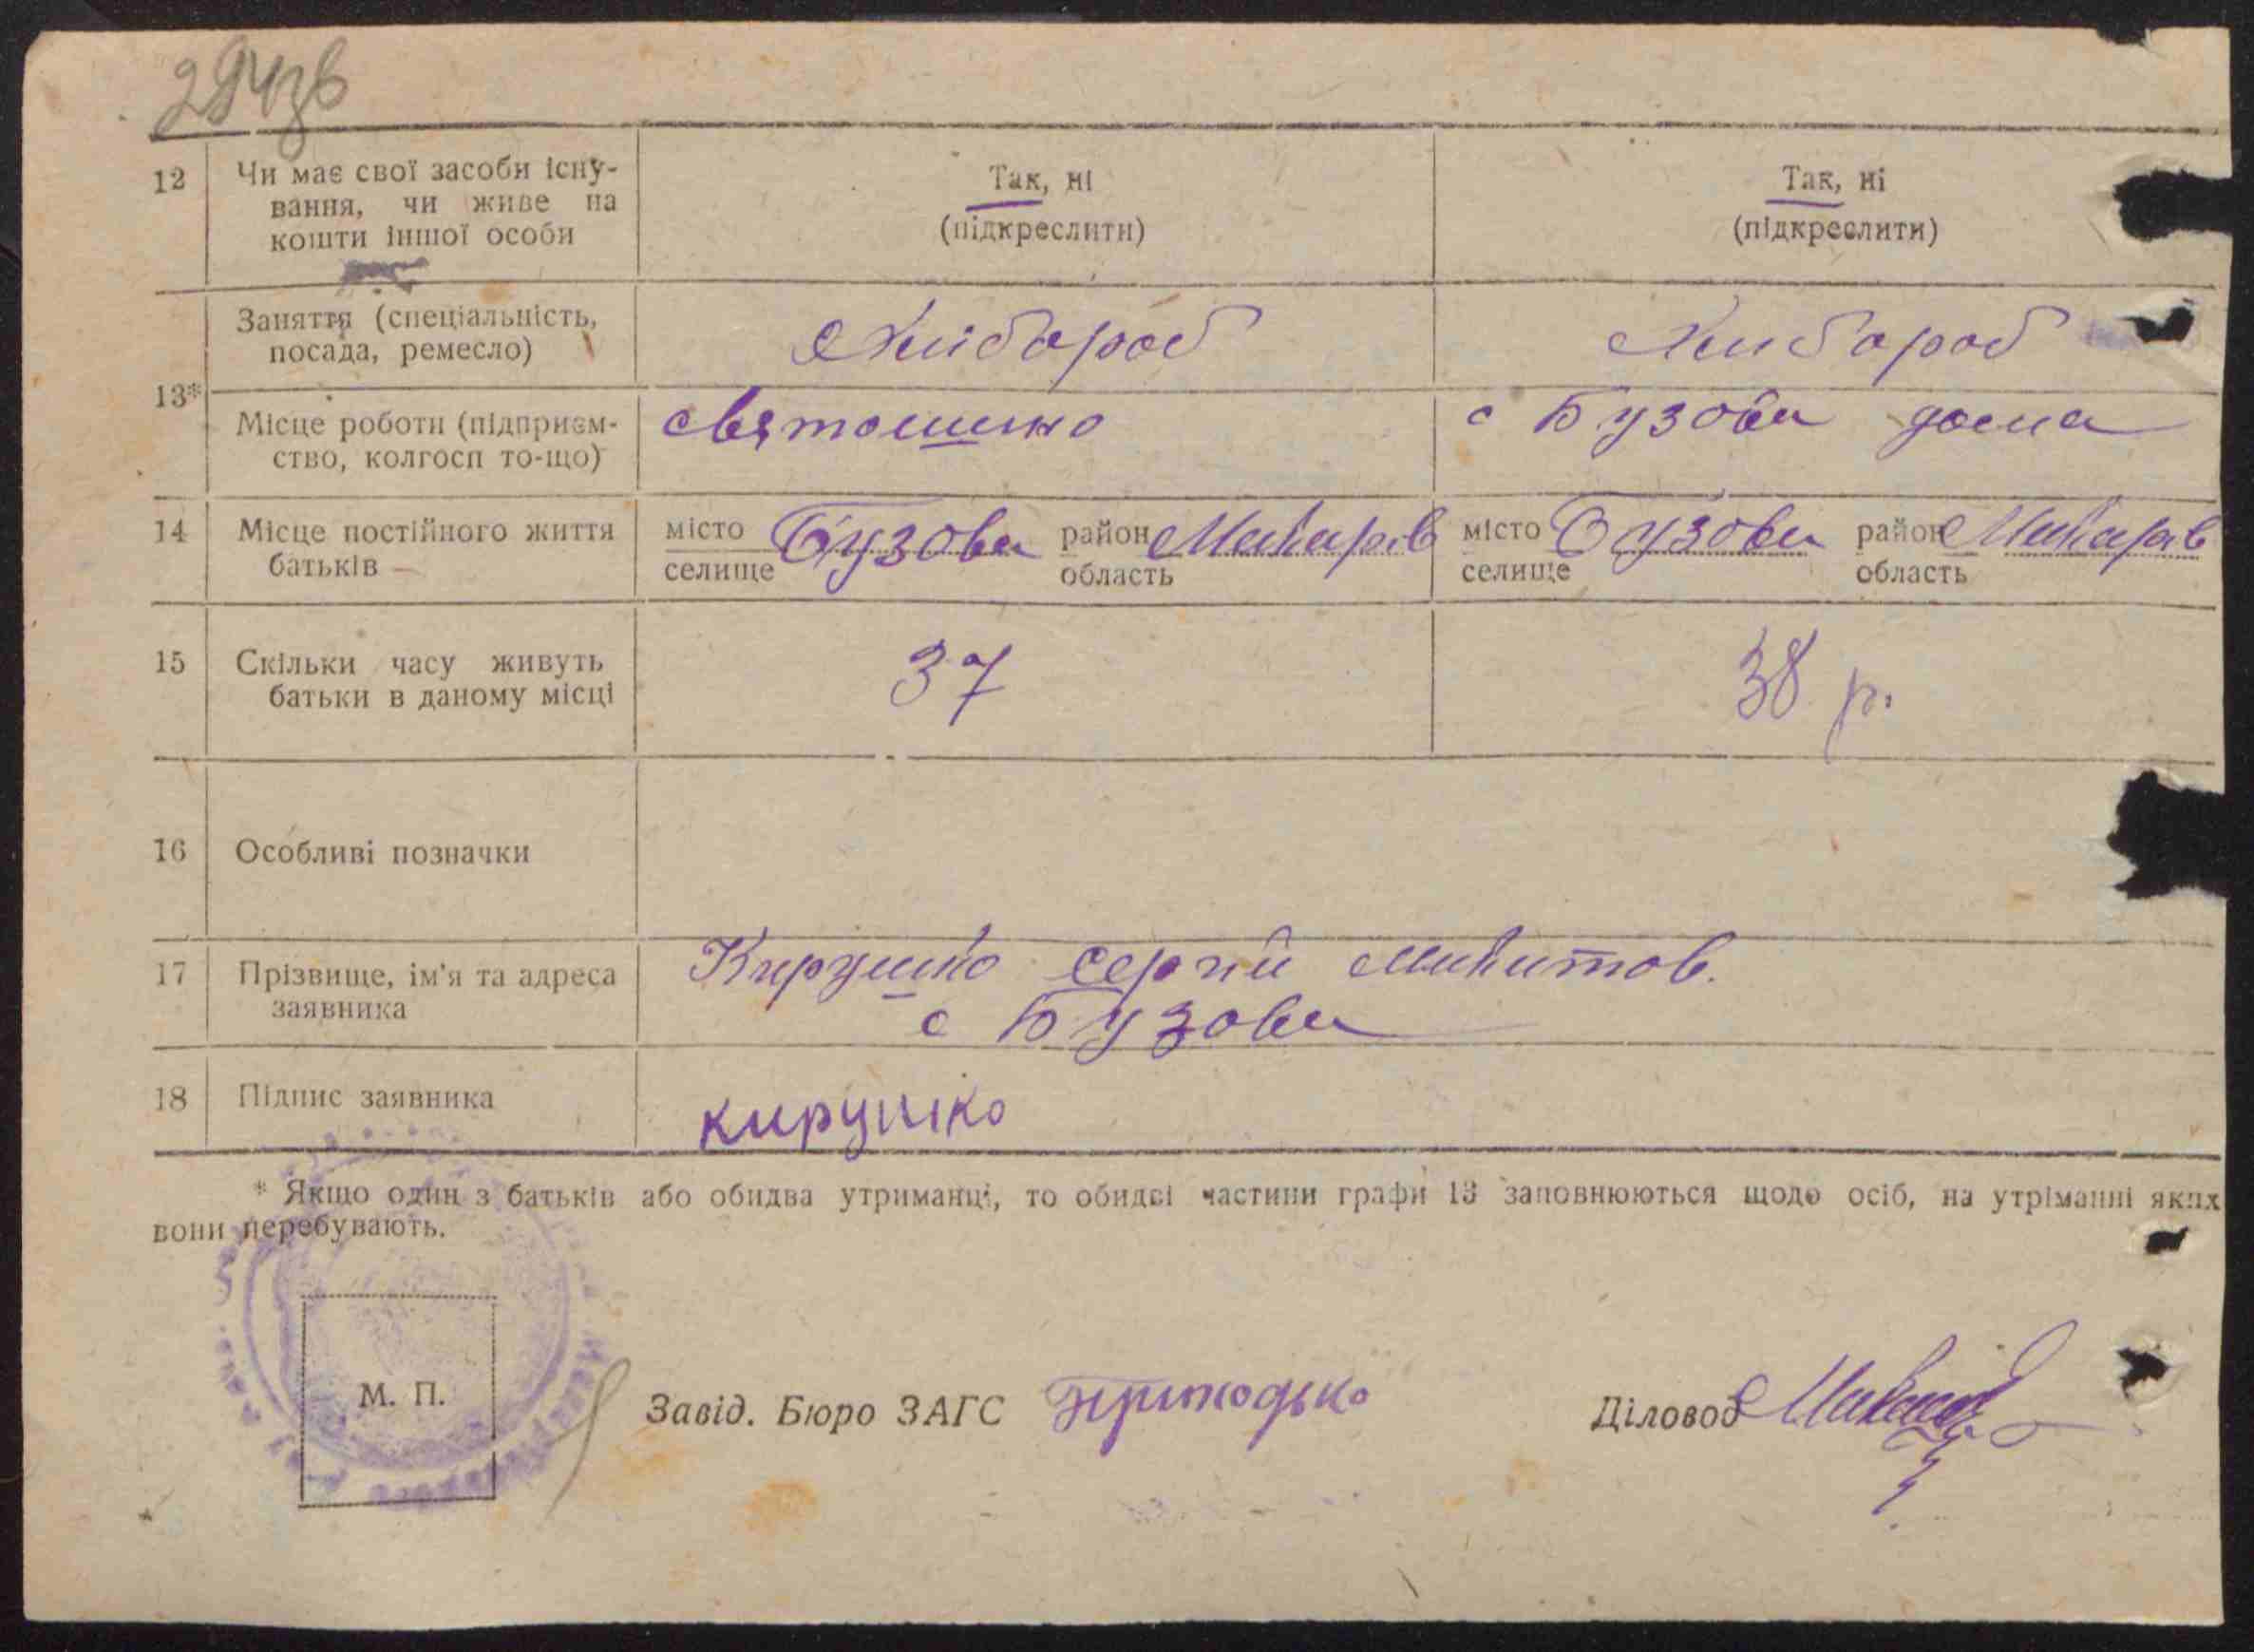 294зв
12 Чи має свої засоби існу-
вання, чи живе на
кошти іншої особи
Так, ні
(підкреслити)
Так, ні
(підкреслити)
13*
Заняття (спеціальність,
посада, ремесло)
Хлибороб
Хлибороб
Місце роботи (підприєм-
ство, колгосп то-що)
Святошино
с Бузова дома
14 Місце постійного життя
батьків
місто Бузова район Макарів
селище область
місто Бузова район Макарів
селище область
15 Скільки часу живуть
батьки в даному місці
37
38 р.
16 Особливі позначки
17 Прізвище, ім'я та адреса
заявника
Кирушко Сергій Микитов.
с Бузова
18 Підпис заявника
кирушко
* Якщо один з батьків або обидва утриманці, то обидві частини графи 13 заповнюються щодо осіб, на утріманні яких
вони перебувають.
М. П.
Завід. Бюро ЗАГС Приходько
Діловод